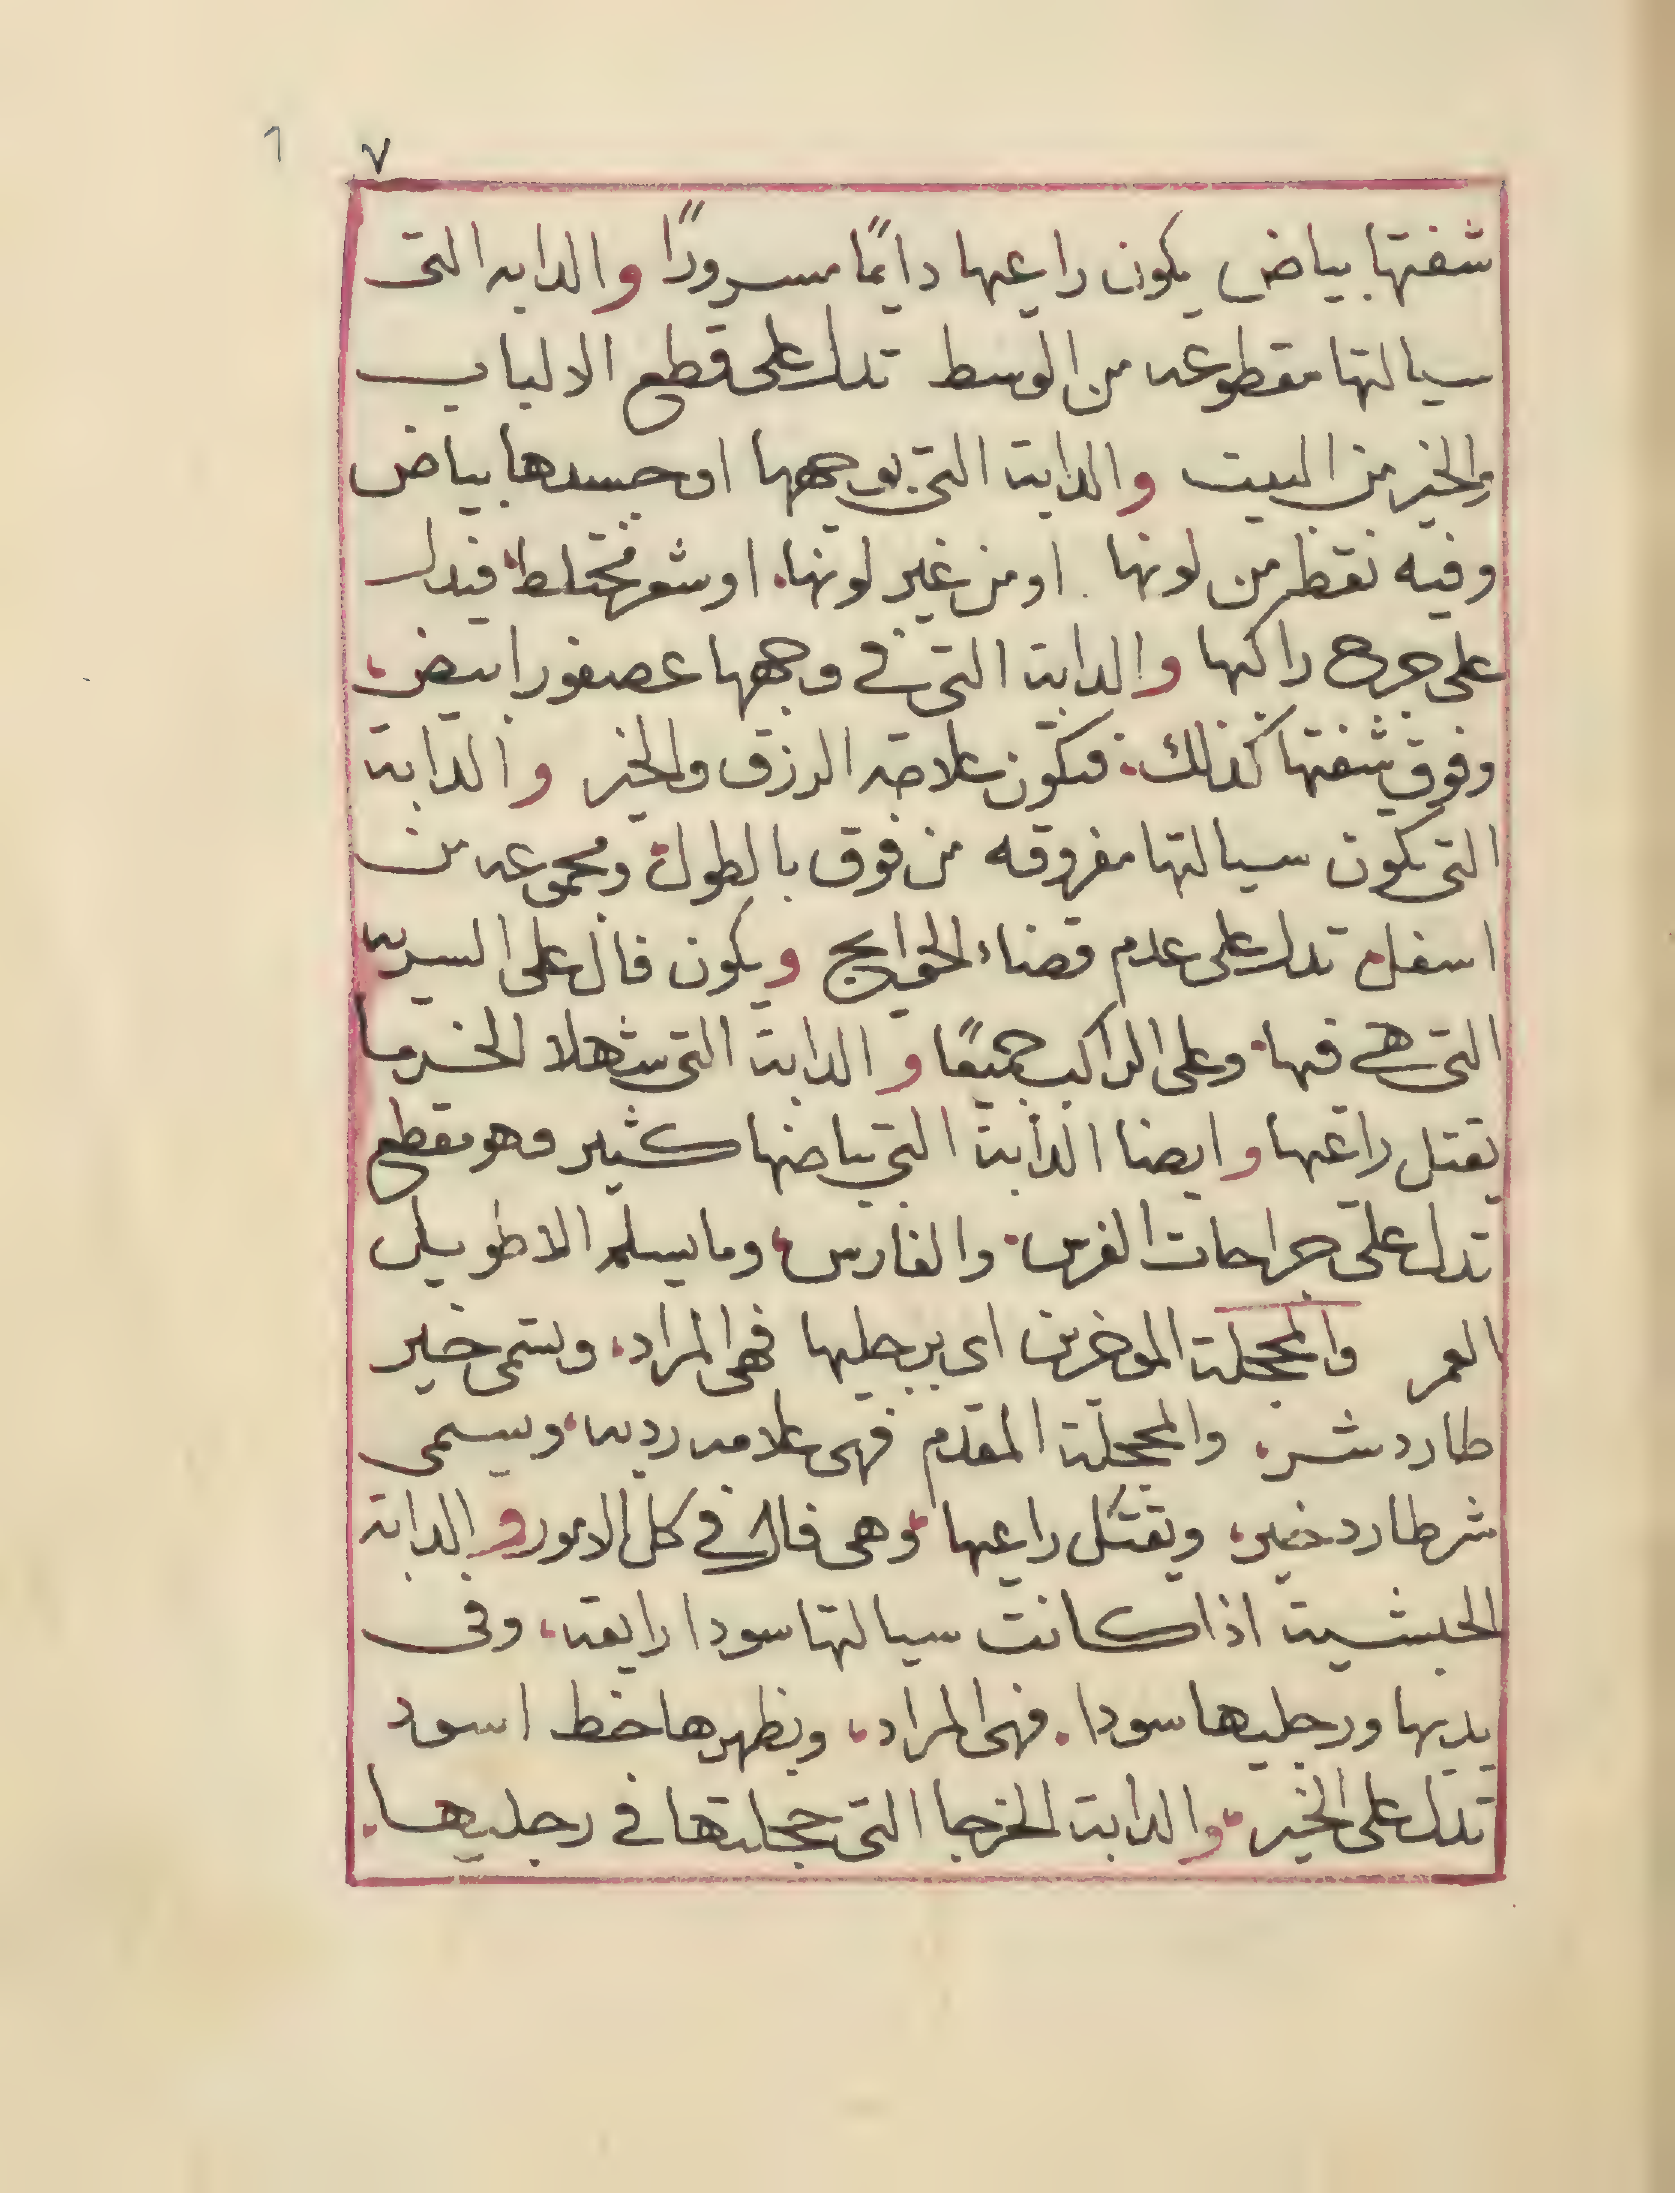 ٧
شفتها بياض يكون راعيها دايمًا مسرورًا والدابه التى
سيالتها مقطوعه من الوسط تدل على قطع الالباب
والخير من البيت والدابة التى بوجهها او جسدها بياض
وفيه نقط من لونها. او من غير لونها. او شعر مختلط فيدل
على جرح راكبها والدابة التى فى وجهها عصفور ابيض
وفوق شفتها كذلك. فتكون علامة الرزق والخير والدابة
التى تكون سيالتها مفروقه من فوق بالطول ومجموعه من
اسفل تدل على عدم قضاء الحوايج ويكون فال على السربة
التى هى فيها. وعلى الراكب جميعًا والدابة التى شهلا الخرما
يقتل راعيها وايضا الدابة التى بياضها كثير وهو مقطع
تدل على جراحات الفرس. والفارس، وما يسلم الا طويل
العمر والمحجلة الموخرين اى برجليها فهى المراد. وتسمى خير
طارد شر. والمحجلة المقدم فهى علامه رديه، ويسمى
شر طارد خير، ويقتل راعيها، وهى فال فى كل الامور والدابة
الحبشية اذا كانت سيالتها سودا رايقه، وفى
يديها ورجليها سودا. فهى المراد، وبظهرها خط اسود
تدل على الخير، والدابة الخرجا التى حجلتها فى رجليها.